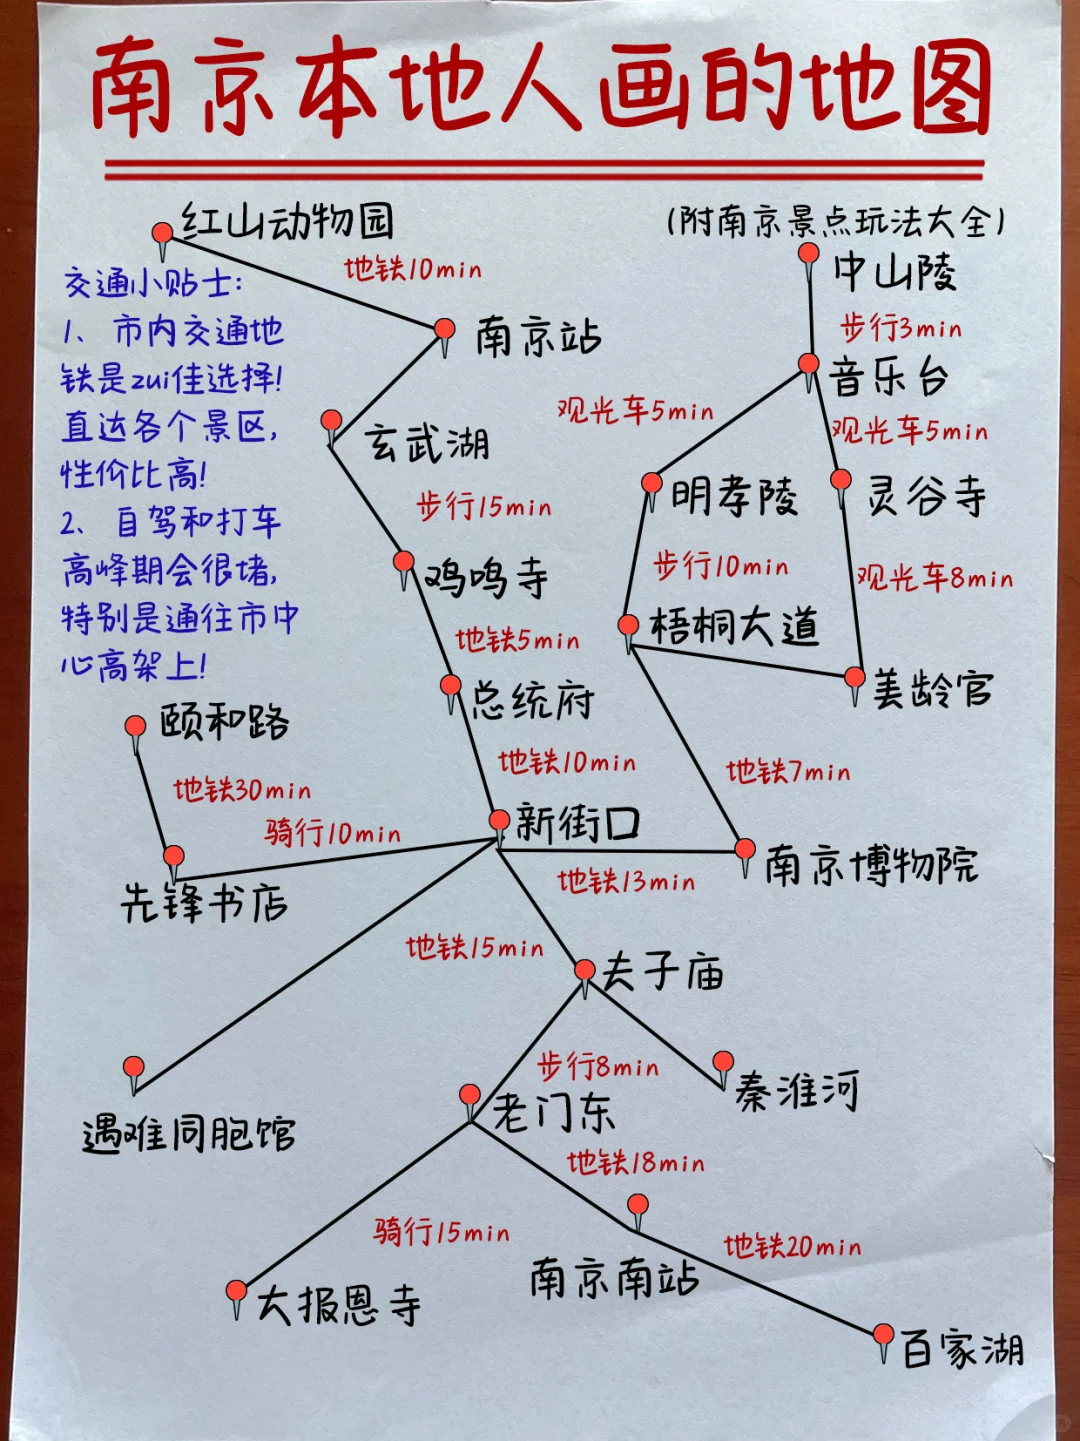 南京本地人画的地图
(附南京景点玩法大全)
红山动物园
地铁10min
中山陵
交通小贴士:
1、市内交通地
铁是zui佳选择!
直达各个景区,
性价比高!
2、自驾和打车
高峰期会很堵,
特别是通往市中
心高架上!
南京站
步行3min
音乐台
观光车5min
观光车5min
玄武湖
明孝陵
灵谷寺
步行15min
鸡鸣寺
步行10min
观光车8min
地铁5min
梧桐大道
总统府
美龄宫
颐和路
地铁10min
地铁7min
地铁30min
骑行10min
新街口
南京博物院
地铁13min
先锋书店
地铁15min
夫子庙
步行8min
秦淮河
老门东
遇难同胞馆
地铁18min
骑行15min
地铁20min
南京南站
大报恩寺
百家湖